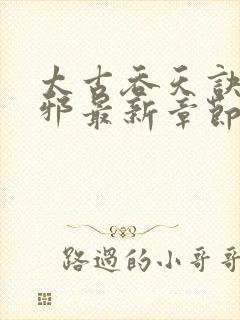 太古吞天訣
邪最新章節
路過的小哥哥